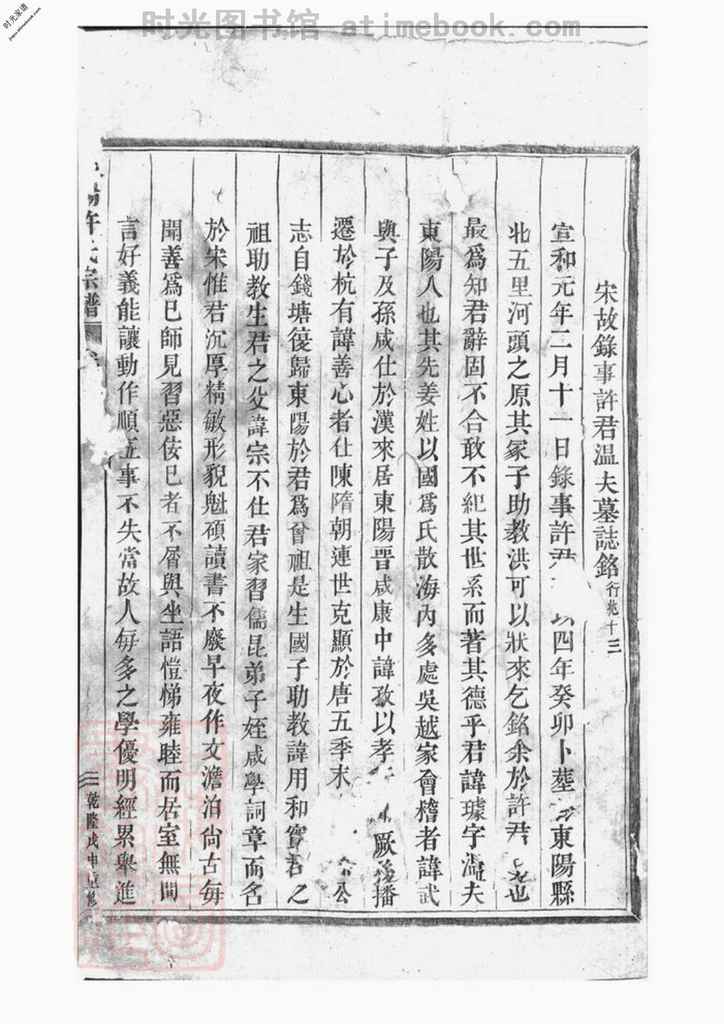 时光图书馆 atimebook.com
时光家谱
宋故錄事許君溫夫墓誌銘行兆十三
宣和元年二月十一日錄事許君 四年癸卯卜塟 東陽縣
北五里河頭之原其冢子助教洪可以狀來乞銘余於許君 也
最爲知君辭固不合敢不紀其世系而著其德乎君諱璩字溫夫
東陽人也其先姜姓以國爲氏散海內多處吳越家會稽者諱武
與子及孫咸仕於漢來居東陽晋咸康中諱孜以孝 厥後播
遷於杭有諱善心者仕陳隋朝連世克顯於唐五季末 公
志自錢塘復歸東陽於君爲曾祖是生國子助教諱用和實君之
祖助教生君之父諱宗不仕君家習儒昆弟子姪咸學詞章而名
於宋惟君沉厚精敏形貌魁碩讀書不廢早夜作文澹泊尙古每
聞善爲已師見習惡伎已者不屑與坐語愷悌雍睦而居室無間
言好義能讓動作順五事不失當故人每多之學優明經累舉進
陽許氏宗譜
乾隆戊申重修